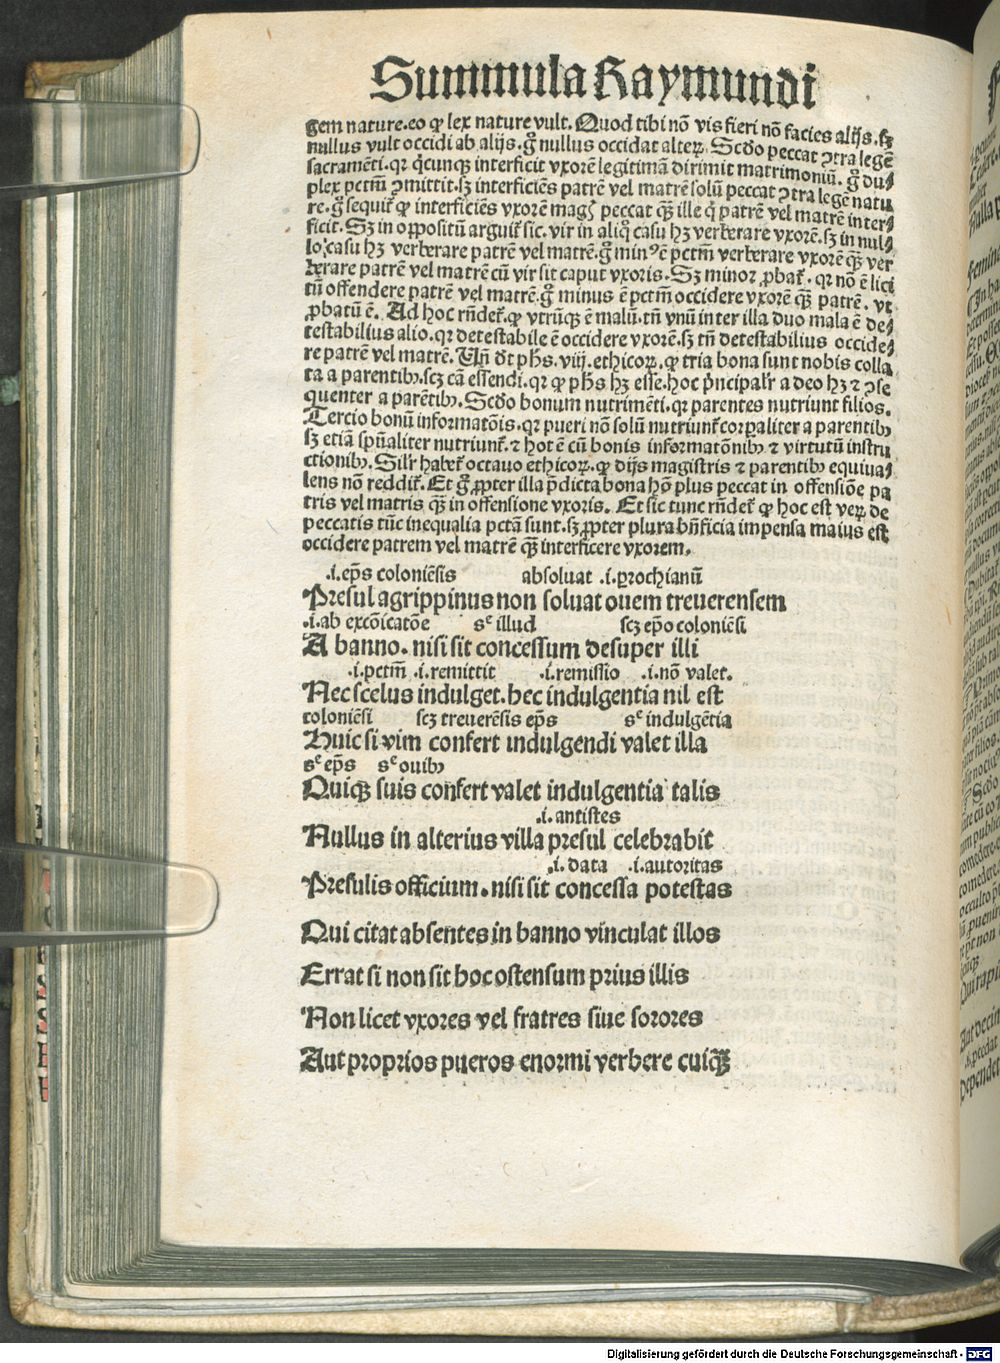 Summula Raymundi
gem nature. eo ꝙ lex nature vult. Quod tibi nō vis fieri nō facies alijs. sꝫ
nullus vult occidi ab alijs. g̊ nullus occidat alteꝝ. Scd̓o peccat ꝯtra legē
sacramēti. qꝛ q̇cunqꝫ interficit vxorē legitimā dirimit matrimoniū. g̊ du⸗
plex pctm̄ ꝯmittit. sꝫ interficiēs patrē vel matrē solū peccat ꝯtra legē natu
re. g̊ sequit᷑ ꝙ interficiēs vxorē magꝭ peccat qꝫ̄ ille q̇ patrē vel matrē inter⸗
ficit. Sꝫ in oppositū arguit᷑ sic. vir in aliq̊ casu hꝫ verberare vxorē. sꝫ in nul⸗
lo casu hꝫ verberare patrē vel matrē. g̊ minꝰ ē pctm̄ verberare vxorē qꝫ̄ ver
berare patrē vel matrē cū vir sit caput vxoris. Sꝫ minor ꝓbat᷑. qꝛ nō ē lici
tū offendere patrē vel matrē. g̊ minus ē pctm̄ occidere vxorē qꝫ̄ patrē. vt
ꝓbatū ē. Ad hoc rn̄det᷑. ꝙ vtrūqꝫ ē malū. tn̄ vnū inter illa duo mala ē de⸗
testabilius alio. qꝛ detestabile ē occidere vxorē. sꝫ tn̄ detestabilius occide⸗
re patrē vel matrē. Vn̄ d̄t ph̄s. viij. ethicoꝝ. ꝙ tria bona sunt nobis colla
ta a parentibꝰ. scꝫ cā essendi. qꝛ ꝙ ph̄s hꝫ esse. hoc p̄ncipalr̄ a deo hꝫ ⁊ ꝯse
quenter a parētibꝰ. Scd̓o bonum nutrimēti. qꝛ parentes nutriunt filios.
Tercio bonū informatōis. qꝛ pueri nō solū nutriunt᷑ corꝑaliter a parentibꝰ
sꝫ etiā sp̄ūaliter nutriunt᷑. ⁊ hot ē cū bonis informatōnibꝰ ⁊ virtutū instru
ctionibꝰ. Silr̄ habet᷑ octauo ethicoꝝ. ꝙ dijs magistris ⁊ parentibꝰ equiua⸗
lens nō reddit᷑. Et g̊ ꝓpter illa p̄dicta bona hō plus peccat in offensiōe pa
tris vel matris qꝫ̄ in offensione vxoris. Et sic tunc rn̄det᷑ ꝙ hoc est veꝝ de
peccatis tūc inequalia pctā sunt. sꝫ ꝓpter plura bn̄ficia impensa maius est
occidere patrem vel matrē qꝫ̄ interficere vxorem.
.i. ep̄s coloniēsis absoluat .i. ꝑrochianū
Presul agrippinus non soluat ouem treuerensem
.i. ab excōicatōe sᶜ illud scꝫ ep̄o coloniēsi
A banno. nisi sit concessum desuper illi
.i. pctm̄ .i. remittit .i. remissio .i. nō valet.
Nec scelus indulget. hec indulgentia nil est
coloniēsi scꝫ treuerēsis ep̄s sᶜ indulgētia
Huic si vim confert indulgendi valet illa
sᶜ ep̄s sᶜ ouibꝰ
Quiqꝫ suis confert valet indulgentia talis
.i. antistes
Nullus in alterius villa presul celebrabit
.i. data .i. autoritas
Presulis officium. nisi sit concessa potestas
Qui citat absentes in banno vinculat illos
Errat si non sit hoc ostensum prius illis
Non licet vxores vel fratres siue sorores
Aut proprios pueros enormi verbere cuiqꝫ̄
Digitalisierung gefördert durch die Deutsche Forschungsgemeinschaft - DFG